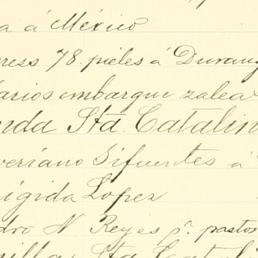 a á México
press 78. pieles á Durang
arios embarque zalea
nda Sta. Catalin
veriano Sifuentes á
rígida Lopez
dro N. Reyes p. pastos
Sta Cat